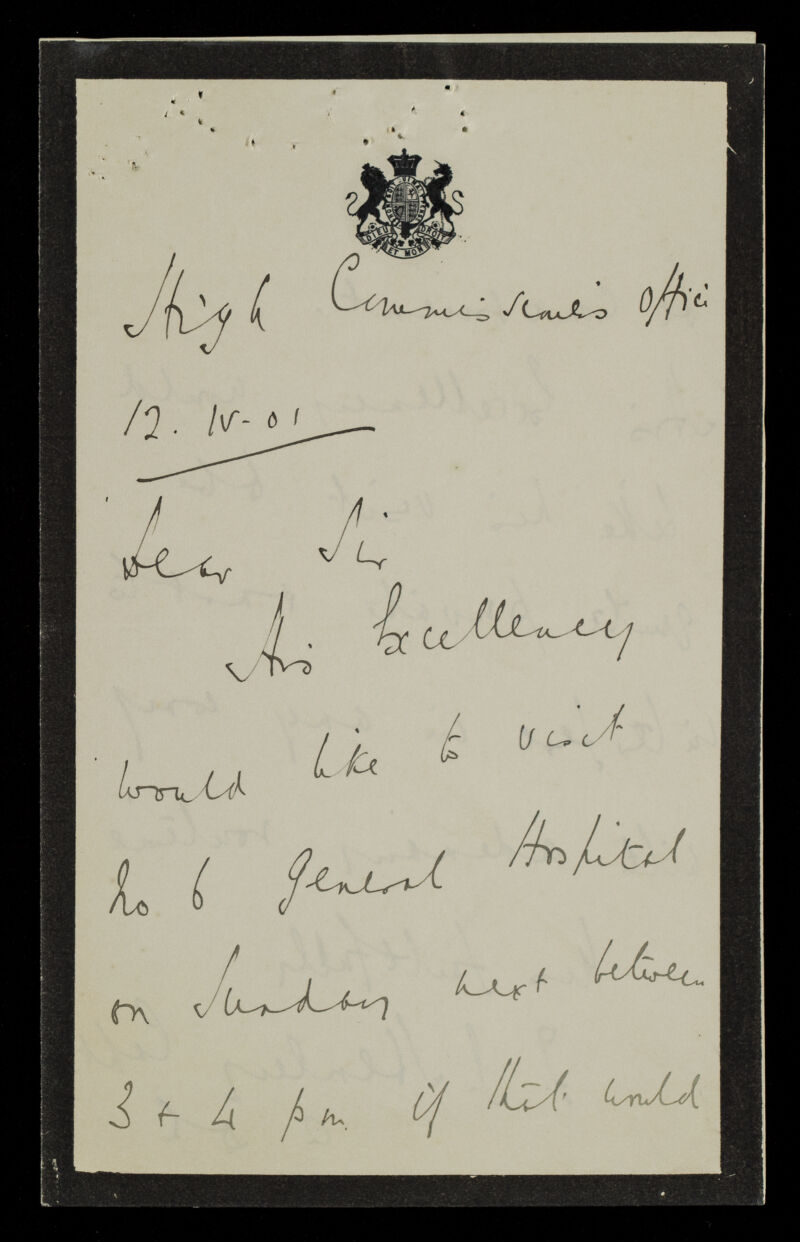 DIEU ET MON DROIT
High Commissioner's Office
12. IV-01
Dear Sir
His Excellency
would like to visit
No 6 General Hospital
on Sunday next between
3 + 4 pm if that would